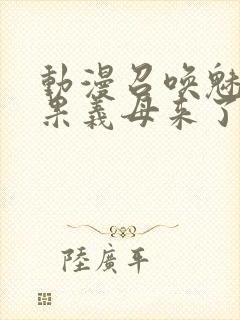 動漫召喚魅
果義母來了
陸廣平